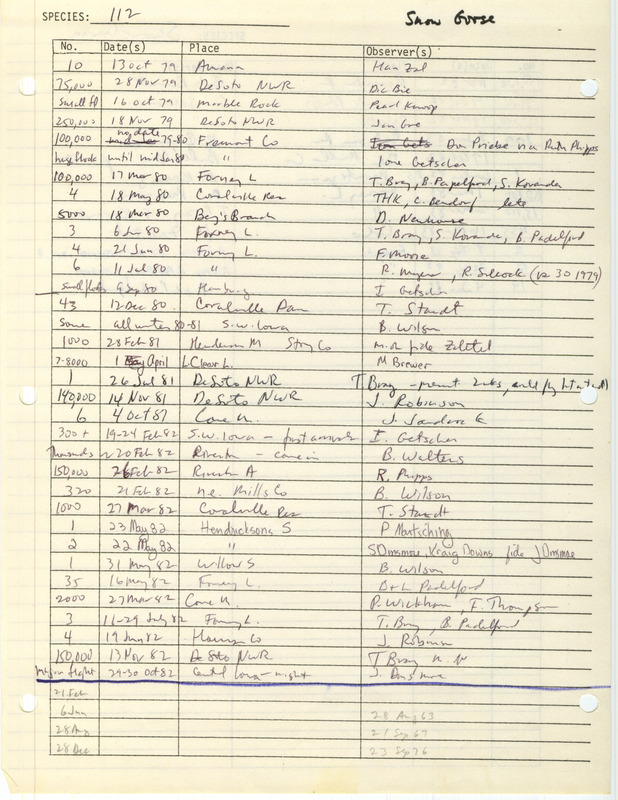 SPECIES: 112 Snow Goose
No. Date(s) Place Observer(s)
10 13 Oct 79 Amana
75,000 28 Nov 79 DeSoto NWR
small fl 16 Oct 79 Marble Rock Pearl Knoop
250,000 18 Nov 79 DeSoto NWR
100,000 no date 79-80 Fremont Co via Ruth Phipps
huge flock until mid Jan 80 " Ione Getscher
100,000 17 Mar 80 Forney L. T. Bray, B. Padelford, S. Kovanda
4 18 May 80 Coralville Res THK, C. Bendorf late
5000 18 Mar 80 Bay's Branch D. Newhouse
3 6 Jun 80 Forney L. T. Bray, S. Kovanda, B. Padelford
4 21 Jun 80 Forney L. F. Moore
6 11 Jul 80 " R. Myers, R. Silcock (vs 30 1979)
small flocks 9 Sep 80 Hamburg I. Getscher
43 12 Dec 80 Coralville Dam T. Staudt
Some all winter 80-81 S.W. Iowa B. Wilson
1000 28 Feb 81 Hendrickson M Story Co
7-8000 1 April Clear L. M Brewer
1 26 Jul 81 DeSoto NWR T. Bray
140,000 14 Nov 81 DeSoto NWR J. Robinson
6 4 Oct 81 Cone M. J. Sandrock
300+ 19-24 Feb 82 S.W. Iowa - first arrivals I. Getscher
thousands 20 Feb 82 Riverton - came in B. Walters
150,000 26 Feb 82 Riverton A R. Phipps
320 21 Feb 82 n.e. Mills Co B. Wilson
1000 27 Mar 82 Coralville Res T. Staudt
1 23 May 82 Hendricksons S P Martsching
2 22 May 82 " S Dinsmore, Kraig Downs fide J Dinsmore
1 31 May 82 Willow S B. Wilson
35 16 May 82 Forney L. B+L Padelford
2000 27 Mar 82 Cone M. P. Wickham, F. Thompson
3 11-29 July 82 Forney L. T. Bray, B. Padelford
4 19 Jun 82 Harrison Co J. Robinson
150,000 13 Nov 82 DeSoto NWR T Bray
major flight 29-30 Oct 82 Central Iowa - night J. Dinsmore
21 Feb
6 Jun 28 Aug 63
28 Aug 21 Sep 67
28 Dec 23 Sep 76